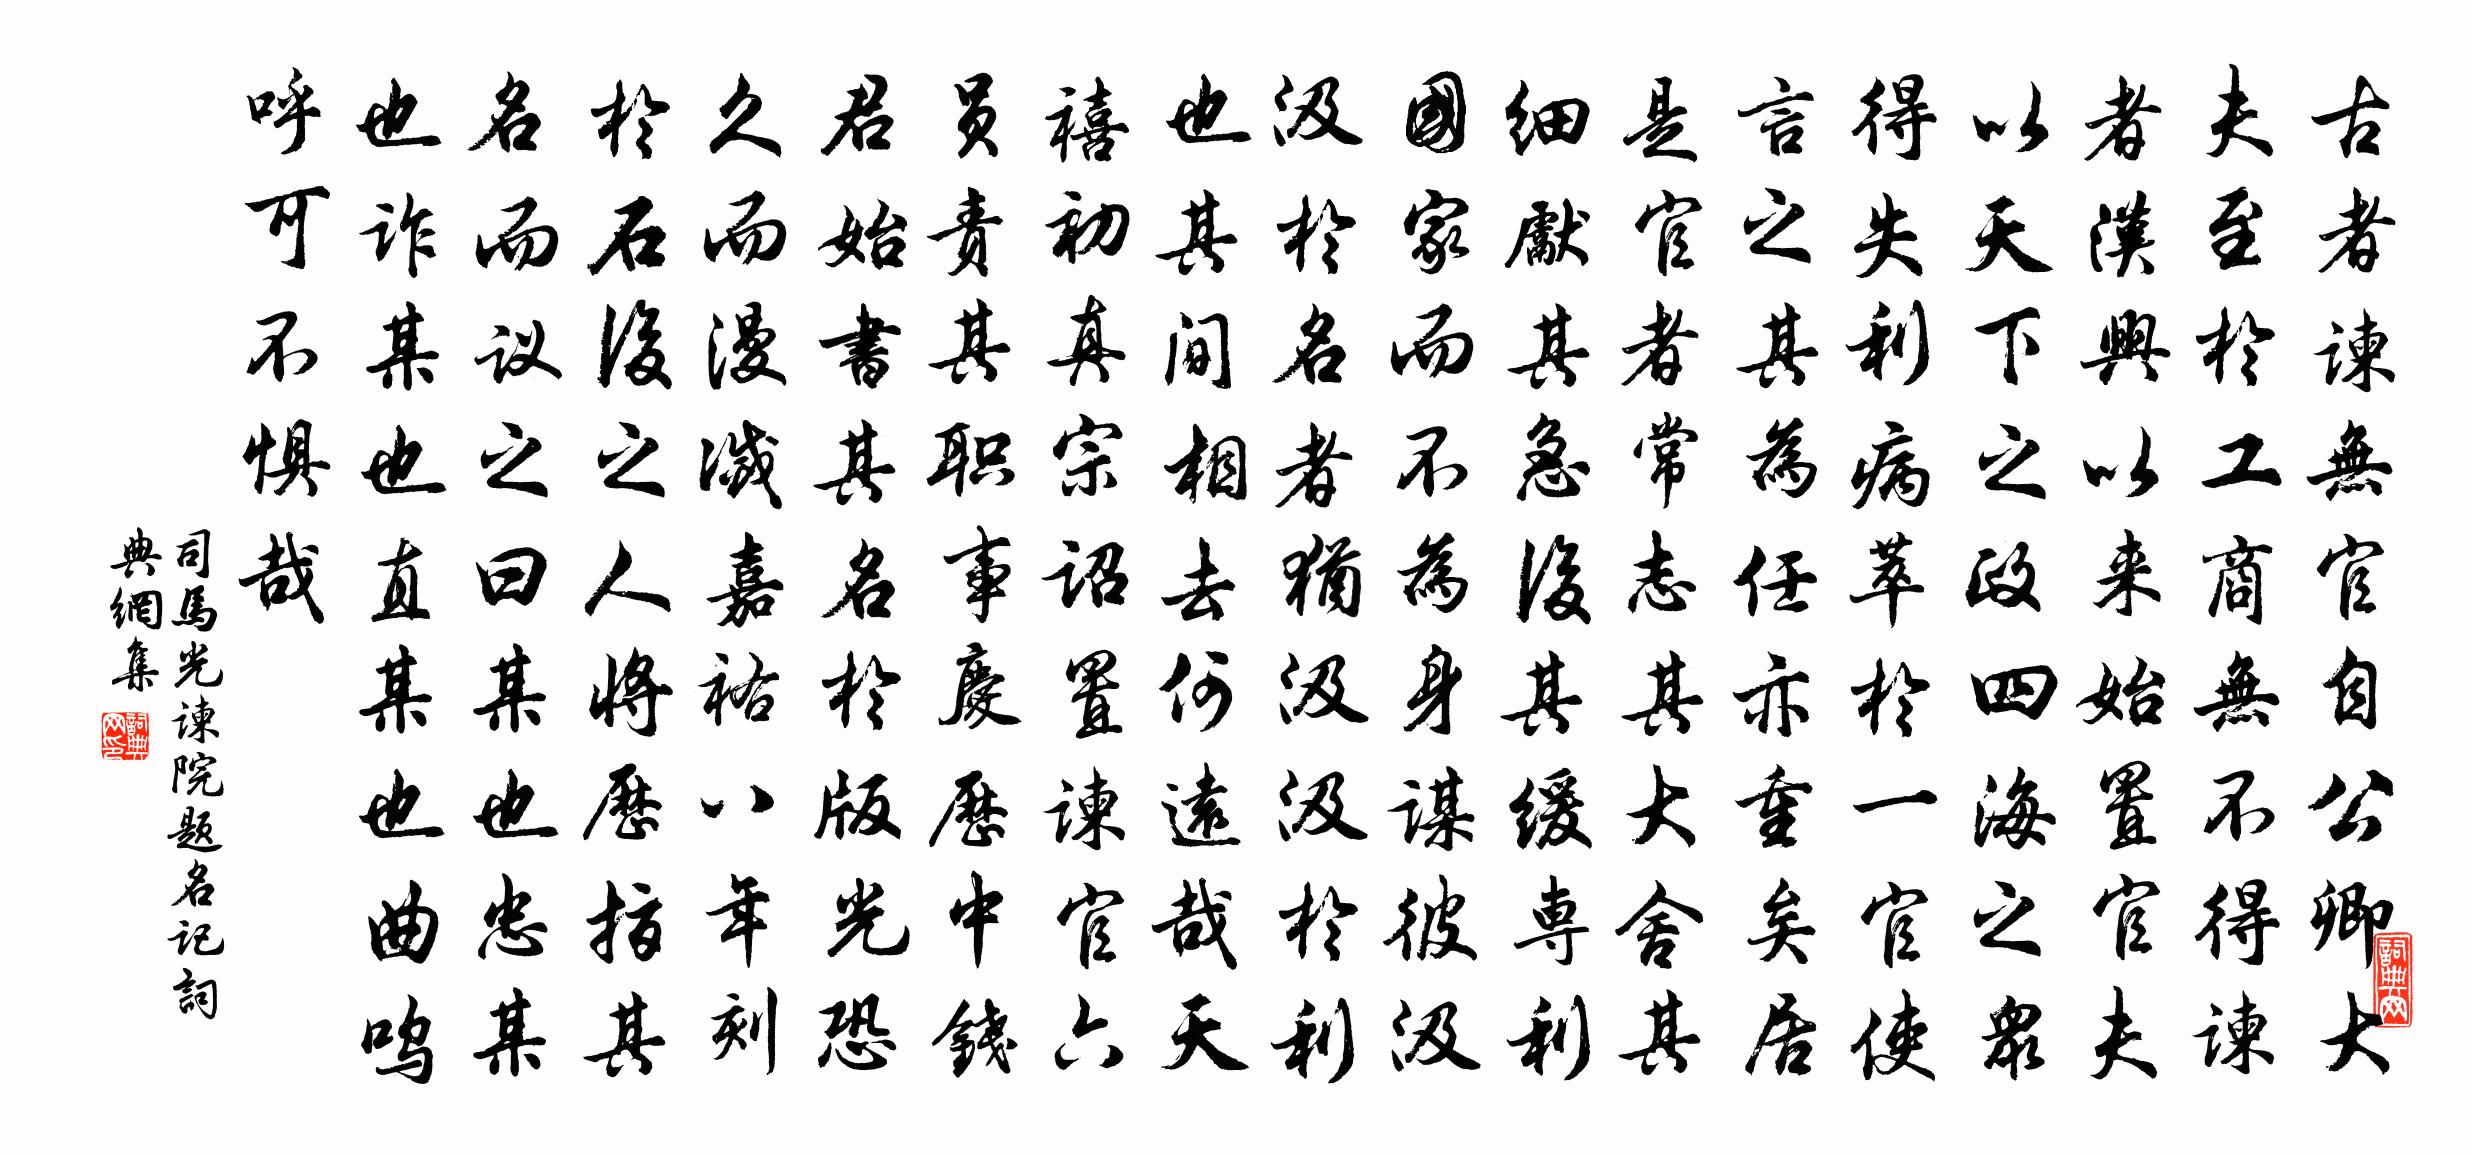 古者諫無官自公卿大
夫至於工商無不得諫
者漢興以来始置官夫
以天下之政四海之衆
得失利病萃於一官使
言之其為任亦重矣居
是官者常志其大舍其
细獻其急後其缓専利
國家而不為身謀彼汲
汲於名者猶汲汲於利
也其间相去何遠哉天
禧初真宗诏置諫官六
员责其职事慶歷中錢
君始書其名於版光恐
久而漫滅嘉祐八年刻
於石後之人將歷指其
名而议之曰某也忠某
也诈某也直某也曲呜
呼可不惧哉
司馬光諫院题名记詞
典網集
詞典网
詞典网印